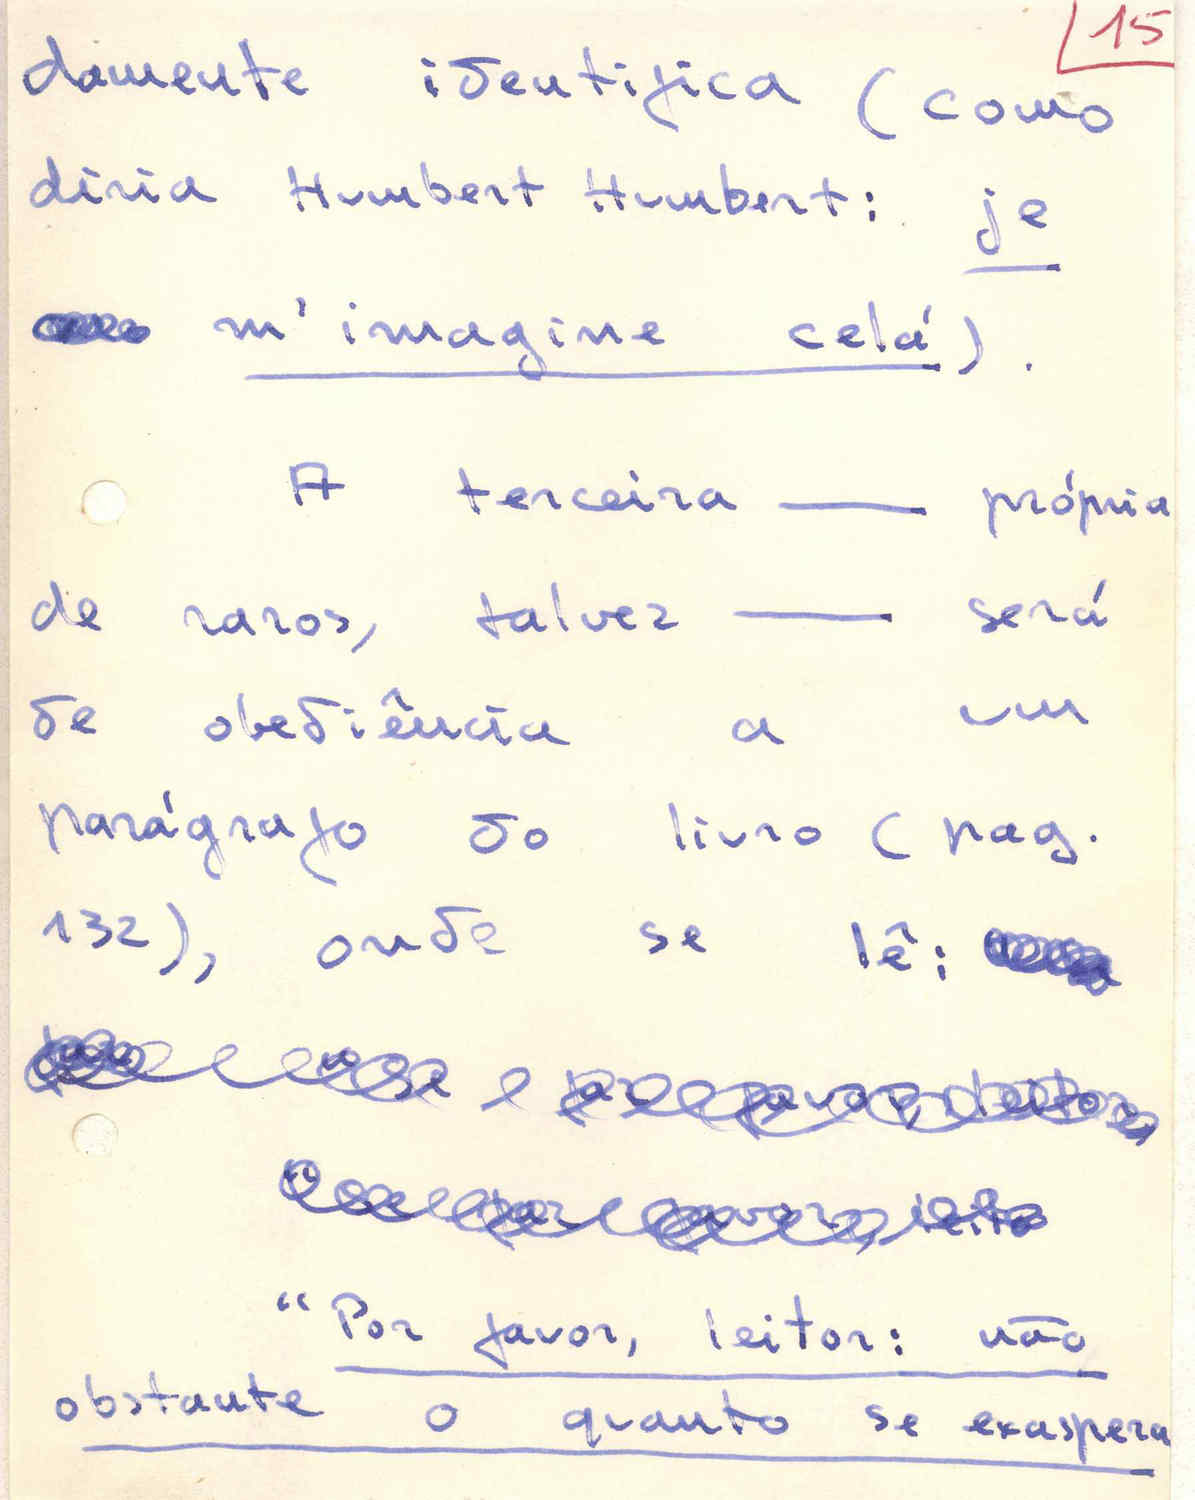 15
damente identifica (como
diria Humbert Humbert: je
m'imagine celá).
A terceira — própria
de raros, talvez — será
de obediência a um
parágrafo do livro (pag.
132), onde se lê:
"Por favor, leitor: não
obstante o quanto se exaspera